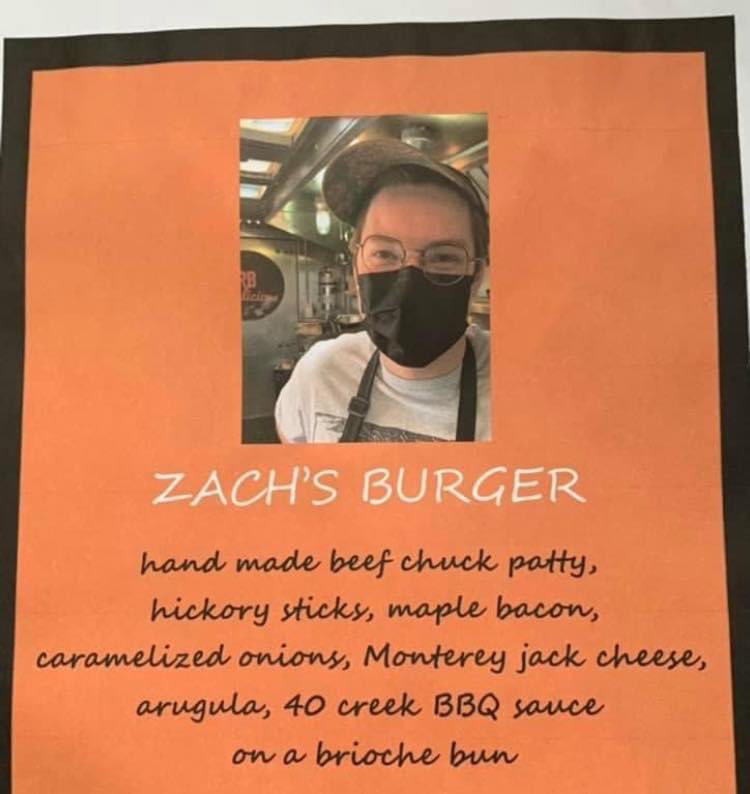 RB
ZACH'S BURGER
hand made beef chuck patty,
hickory sticks, maple bacon,
caramelized onions, Monterey jack cheese,
arugula, 40 creek BBQ sauce
on a brioche bun